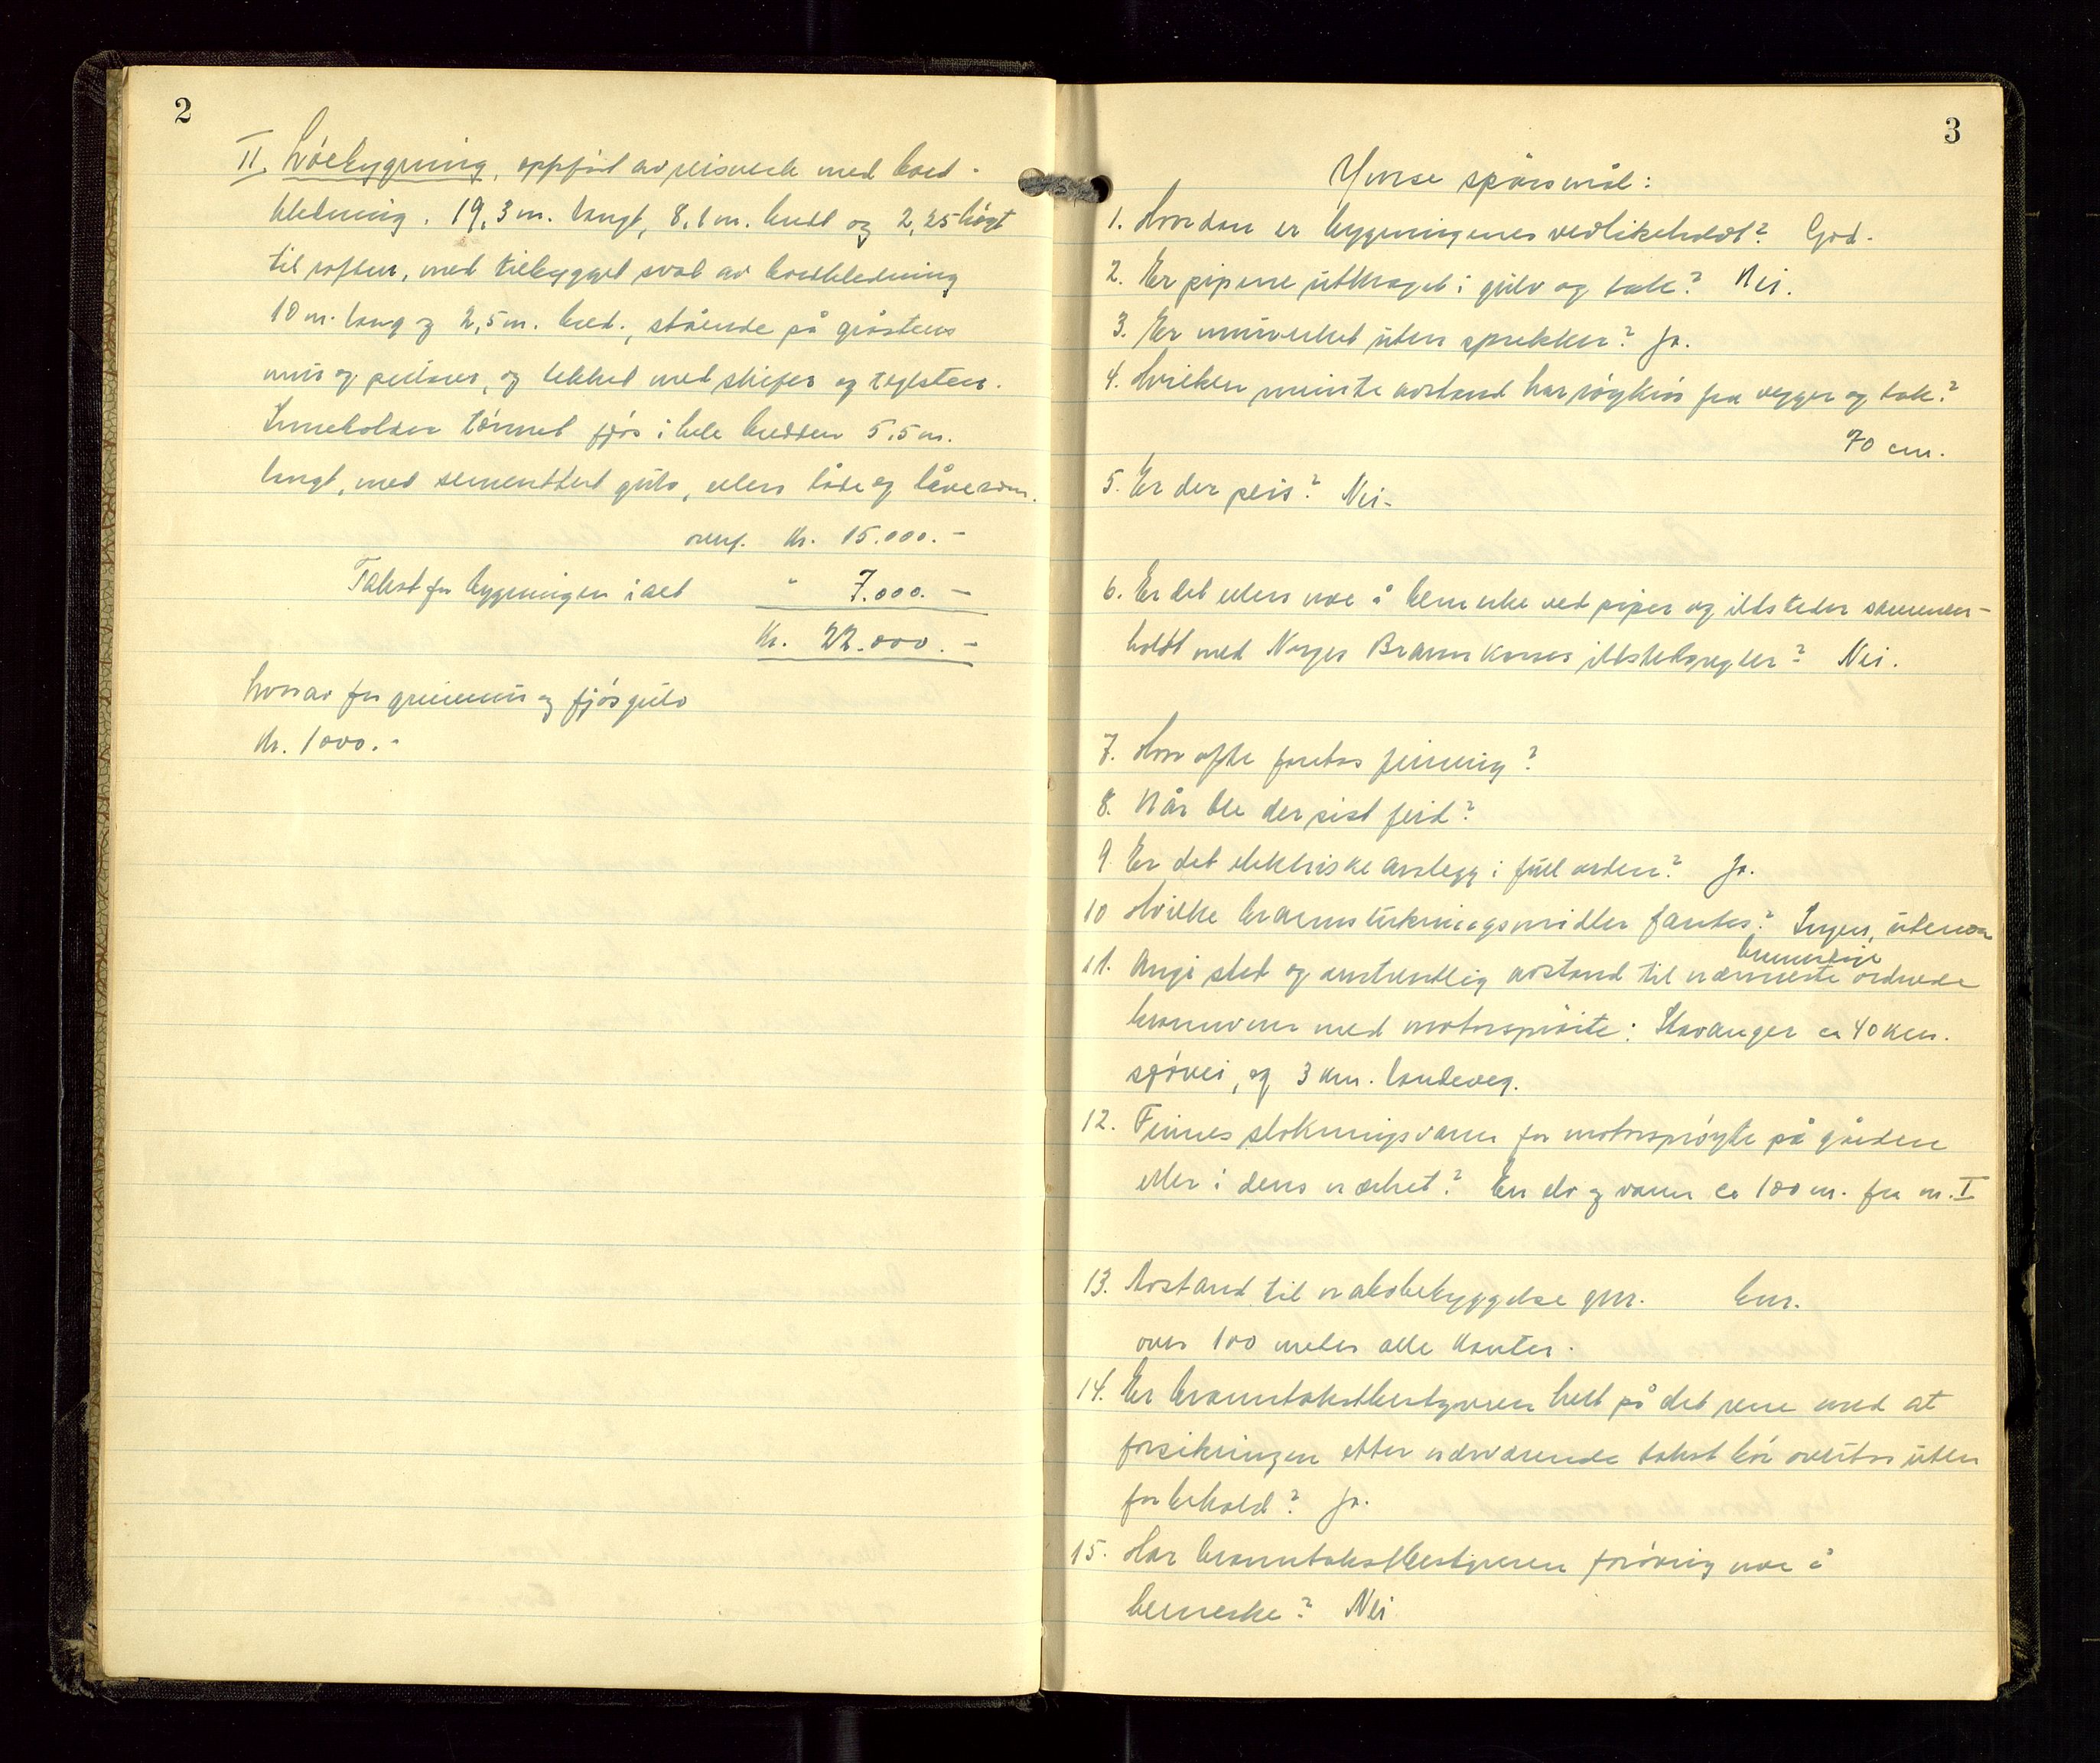 2
II. Löebygning, oppfört av reisverk med bord-
kledning. 19,3 m. langt, 8,1 m. bredt og 2,25 högt
til raften, med tilbygget sval av bordkledning
10 m. lang og 2,5 m. bred, stående på gråstens
mur og peilarer, og tekket med skifer og teglsten.
Inneholder tömret fjös i hele bredden 5,5 m.
langt, med sementert gulv, ellers löde og låverom.
overf. Kr. 15.000.-
Takst for bygningen i alt " 7.000.-
Kr. 22.000.-
hvorav for grunnmur og fjösgulv
Kr. 1000.-
3
Ymse spörsmål:
1. Hvordan er bygningenes vedlikeholdt? God.
2. Er pipene utkraget i gulv og tak? Nei.
3. Er murverket uten sprekker? Ja.
4. Hvilken minste avstand har röykrör fra vegger og tak?
70 cm.
5. Er der peis? Nei.
6. Er det ellers noe å bemerke ved piper og ildsteder sammen-
holdt med Norges Brannkasses ildstedsregler? Nei.
7. Hvor ofte foretas feining?
8. Når ble der sist feid?
9. Er det elektriske anlegg i full orden? Ja.
10 Hvilke brannslukningsmidler fantes? Ingen, utenom
brannbøtte
11. Angi sted og omtrentlig avstand til nærmeste ordnede
brannvern med motorspröite: Stavanger ca 40 km.
sjövei, og 3 km. landeveg.
12. Finnes slokningsvann for motorspröyte på gården
eller i dens nærhet? En elv og vann ca 100 m. fra nr. I
13. Avstand til nabobebyggelse gnr. bnr.
over 100 meter alle kanter.
14. Er branntakstbestyreren helt på det rene med at
forsikringen etter nærværende takst bör overtas uten
forbehold? Ja.
15. Har branntakstbestyreren forövrig noe å
bemerke? Nei